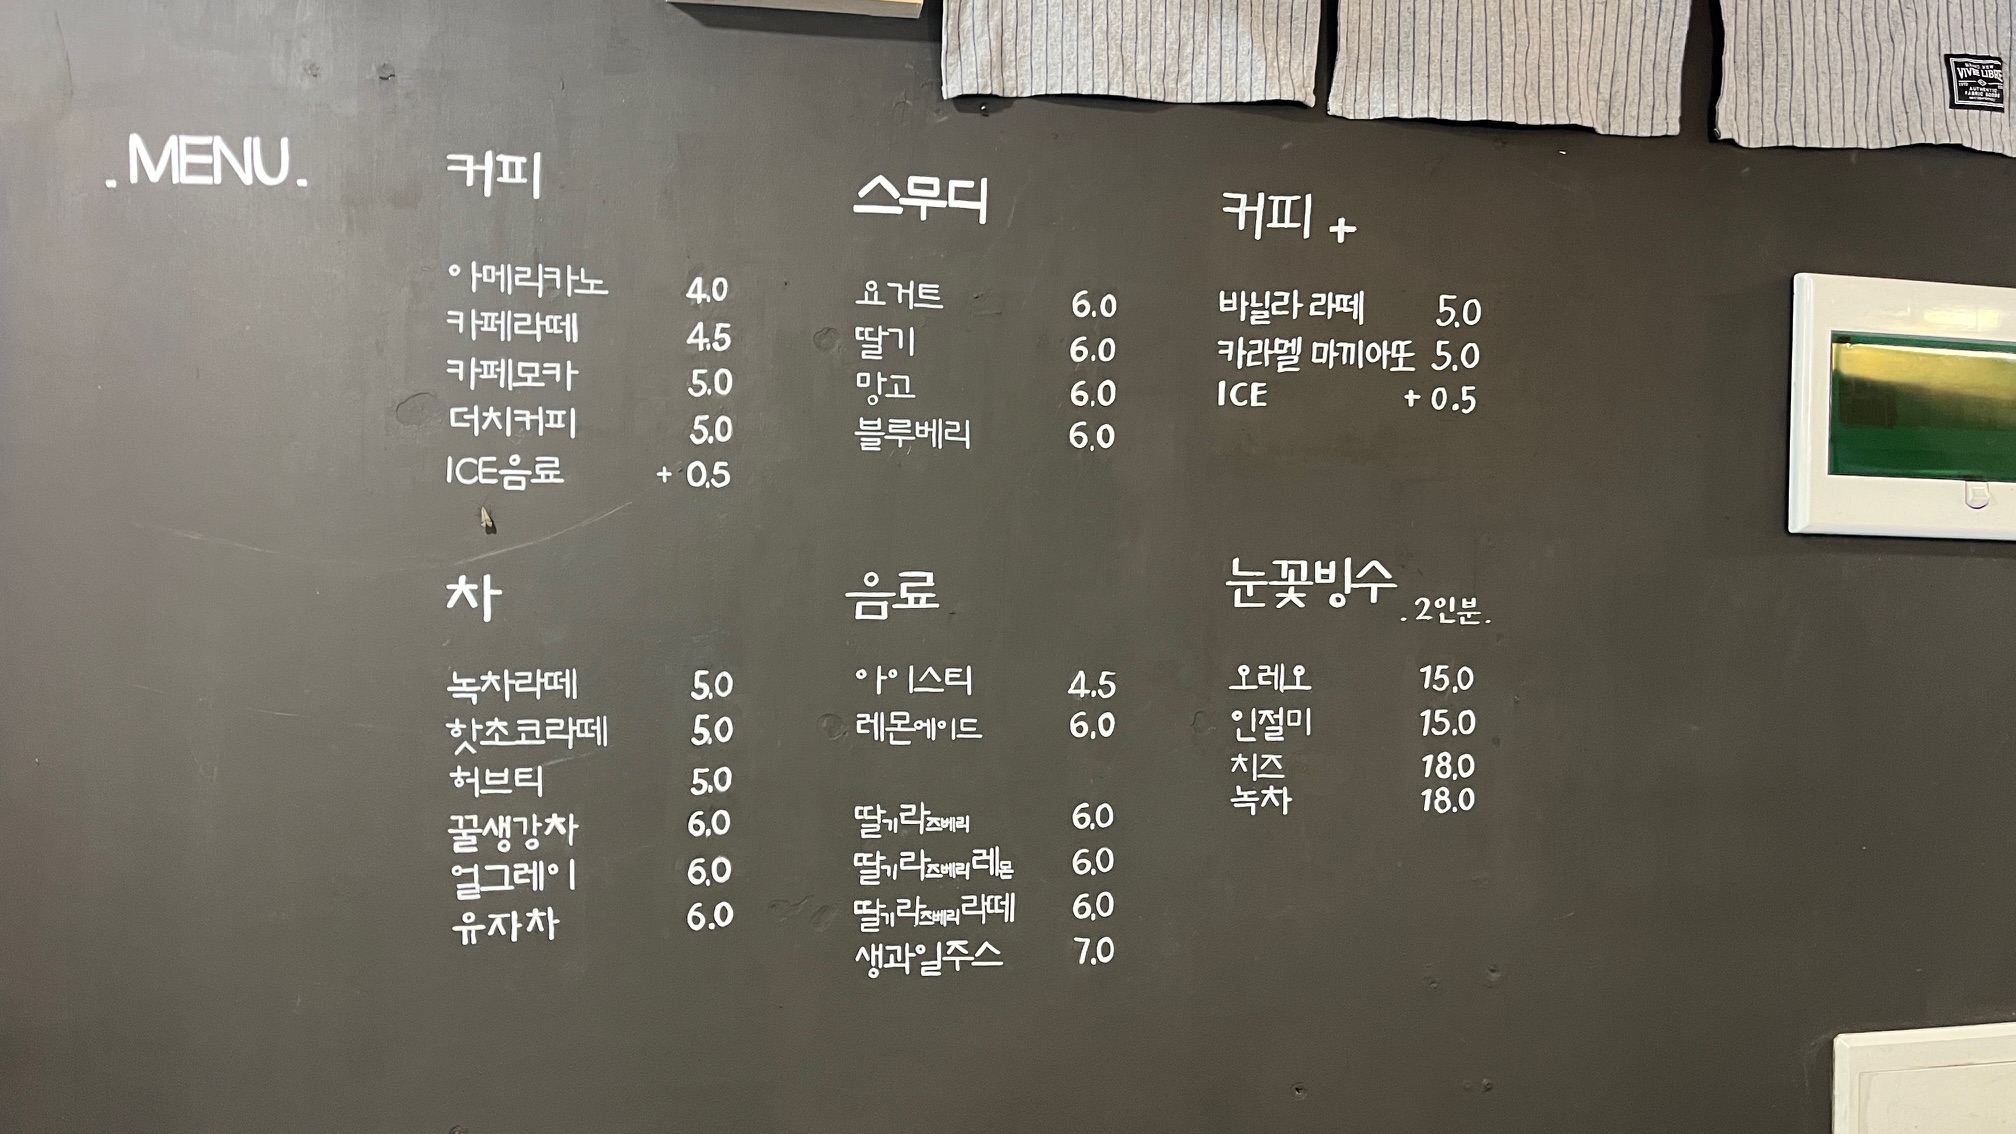 . MENU .
커피
아메리카노 4.0
카페라떼 4.5
카페모카 5.0
더치커피 5.0
ICE음료 + 0.5
스무디
요거트 6.0
딸기 6.0
망고 6.0
블루베리 6.0
커피 +
바닐라 라떼 5.0
카라멜 마끼아또 5.0
ICE + 0.5
차
녹차라떼 5.0
핫초코라떼 5.0
허브티 5.0
꿀생강차 6.0
얼그레이 6.0
유자차 6.0
음료
아이스티 4.5
레몬에이드 6.0
딸기라즈베리 6.0
딸기라즈베리레몬 6.0
딸기라즈베리라떼 6.0
생과일주스 7.0
눈꽃빙수 . 2인분.
오레오 15.0
인절미 15.0
치즈 18.0
녹차 18.0
VIVRE LIBRE
AUTHENTIC